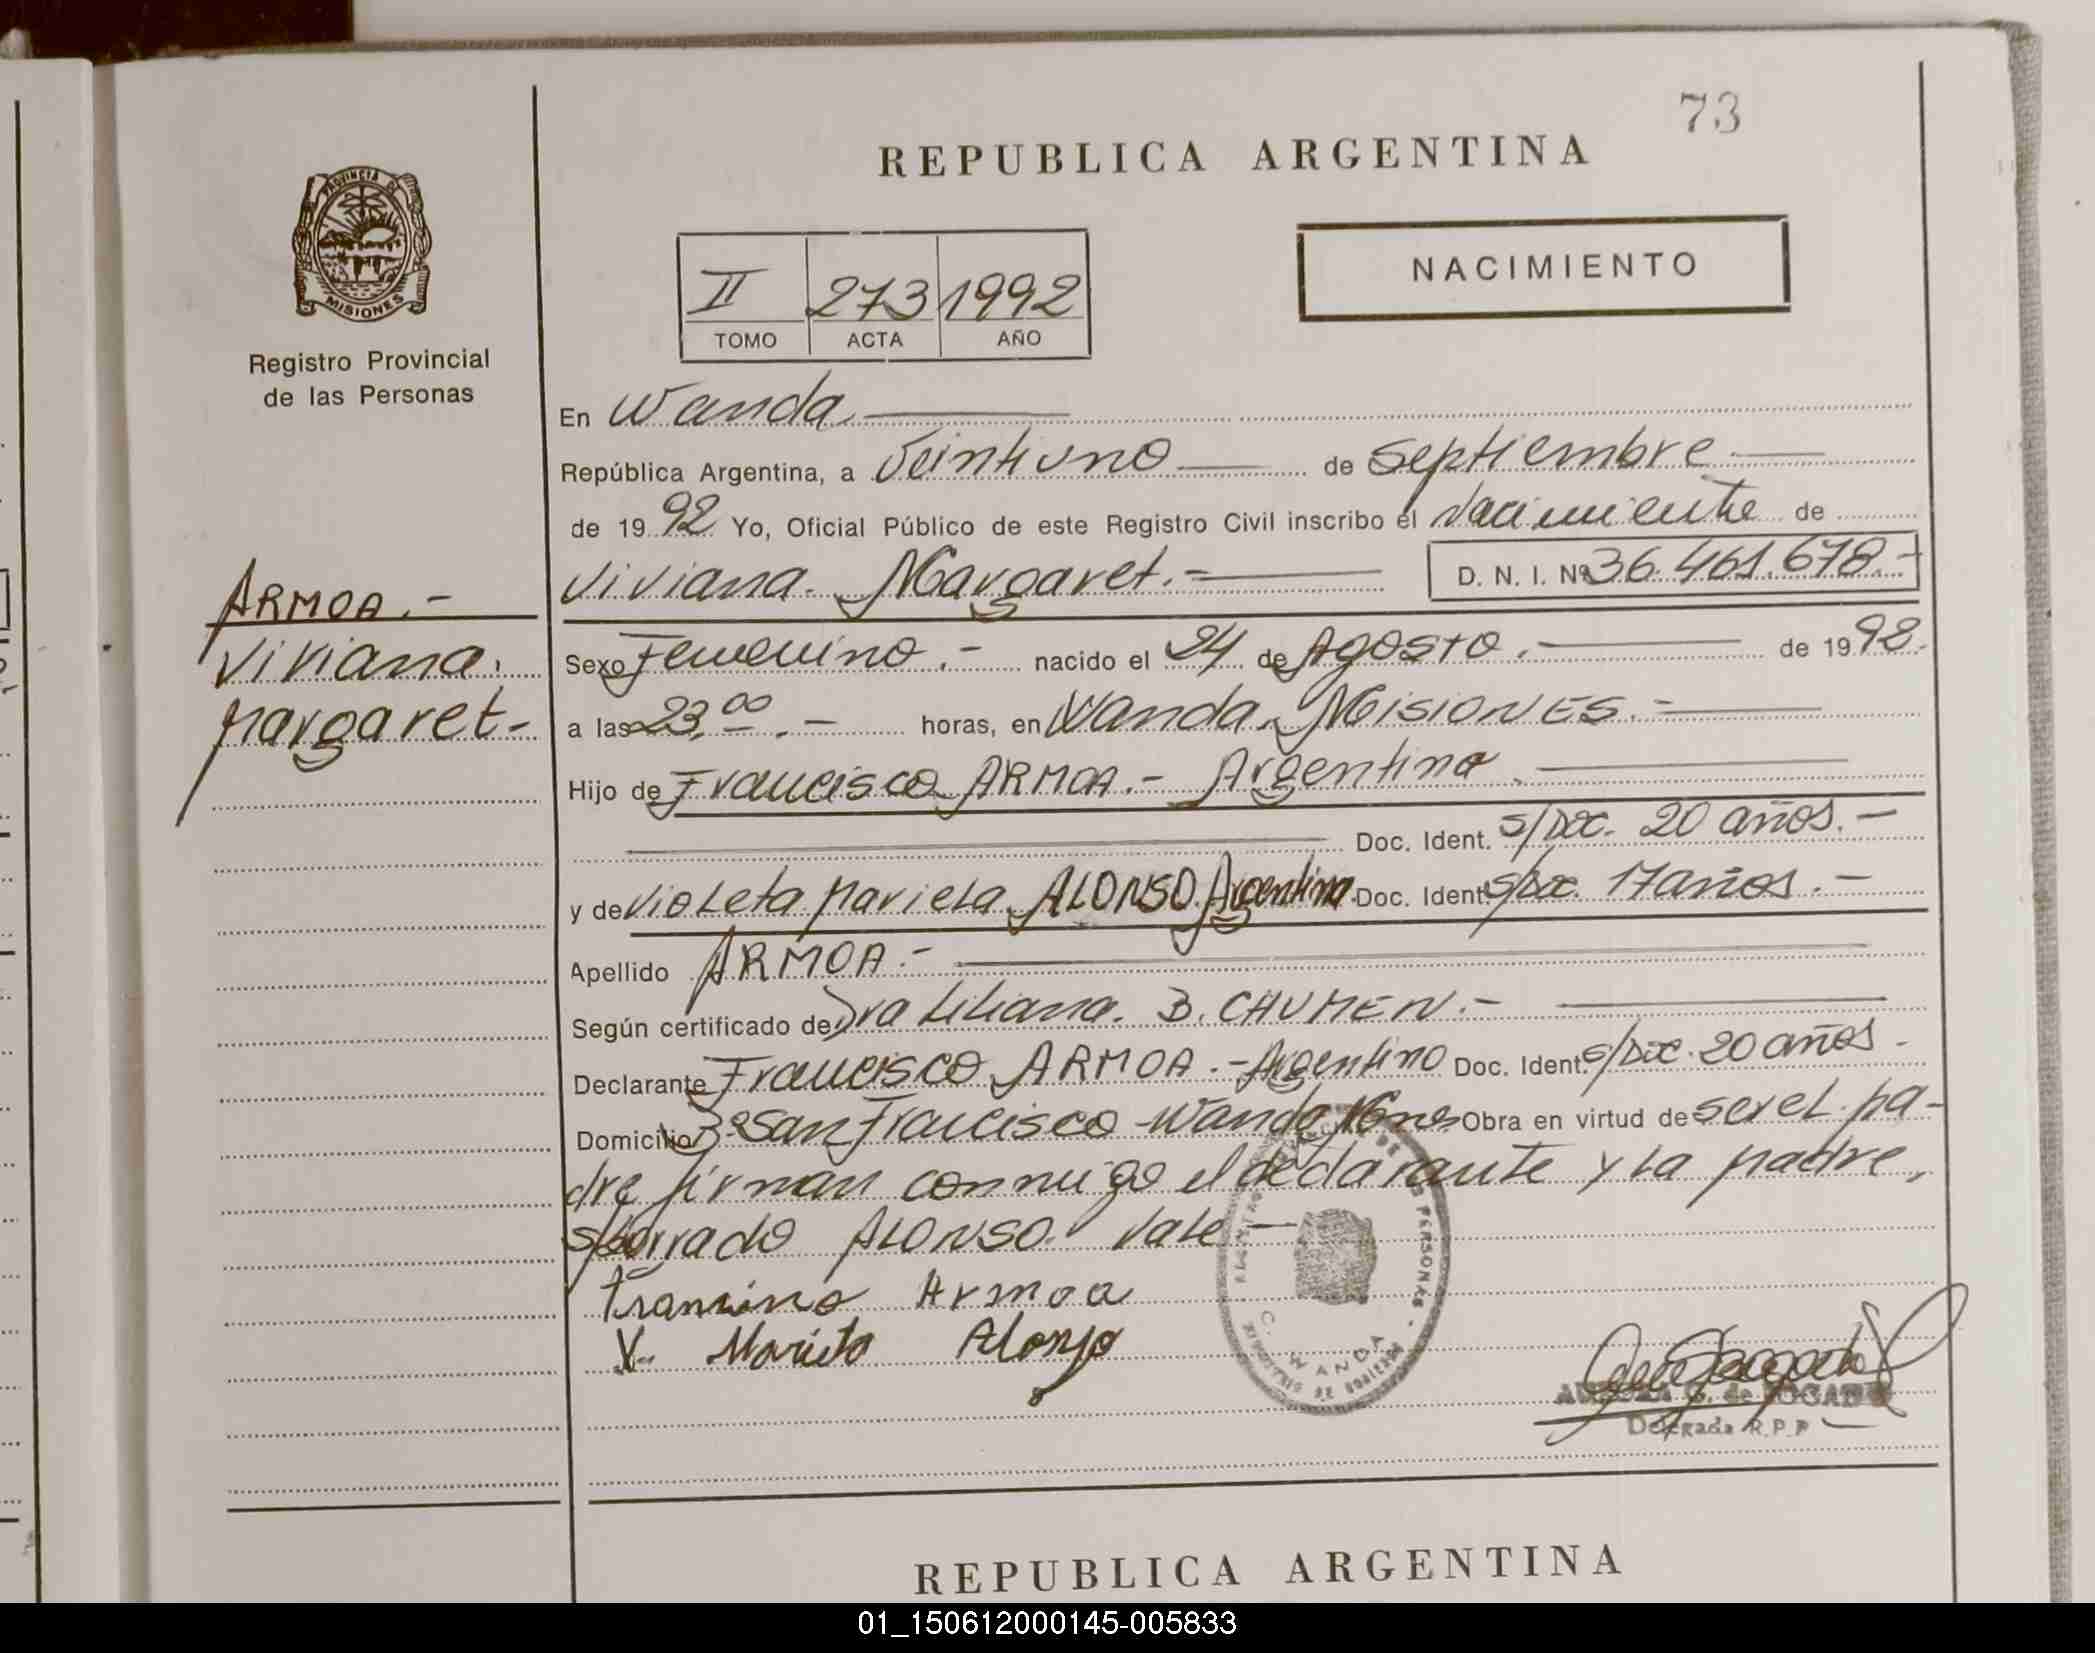 73
REPUBLICA ARGENTINA
PROVINCIA DE
MISIONES
Registro Provincial
de las Personas
II 273 1992
TOMO ACTA AÑO
NACIMIENTO
En Wanda
República Argentina, a Veintiuno de Septiembre
de 1992 Yo, Oficial Público de este Registro Civil inscribo el Nacimiento de
Viviana Margaret.- D. N. I. Nº 36.461.678.-
ARMOA.-
Viviana.
Margaret-
Sexo Femenino.- nacido el 24 de Agosto.- de 1992.
a las 23,00.- horas, en Wanda. MISIONES.-
Hijo de Francisco ARMOA.- Argentino.
Doc. Ident. s/Doc. 20 años.-
y de Violeta Mariela ALONSO Argentina Doc. Ident. s/Doc. 17 años.-
Apellido ARMOA.-
Según certificado de Dra Liliana. B. CHUMEN.-
Declarante Francisco ARMOA.- Argentino Doc. Ident. s/Doc. 20 años.-
Domicilio Bº San Francisco - Wanda Mnes Obra en virtud de ser el pa-
dre firman conmigo el declarante y la madre,
s/borrado ALONSO. Vale -
Francisco Armoa
V. Mariela Alonso
DE LAS PERSONAS
C. WANDA
MINISTERIO DE GOBIERNO
G. de BOGADO
Delegada R.P.P
REPUBLICA ARGENTINA
01_150612000145-005833